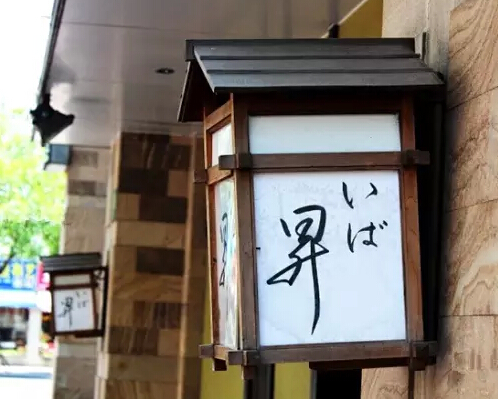 いば
昇
いば
昇